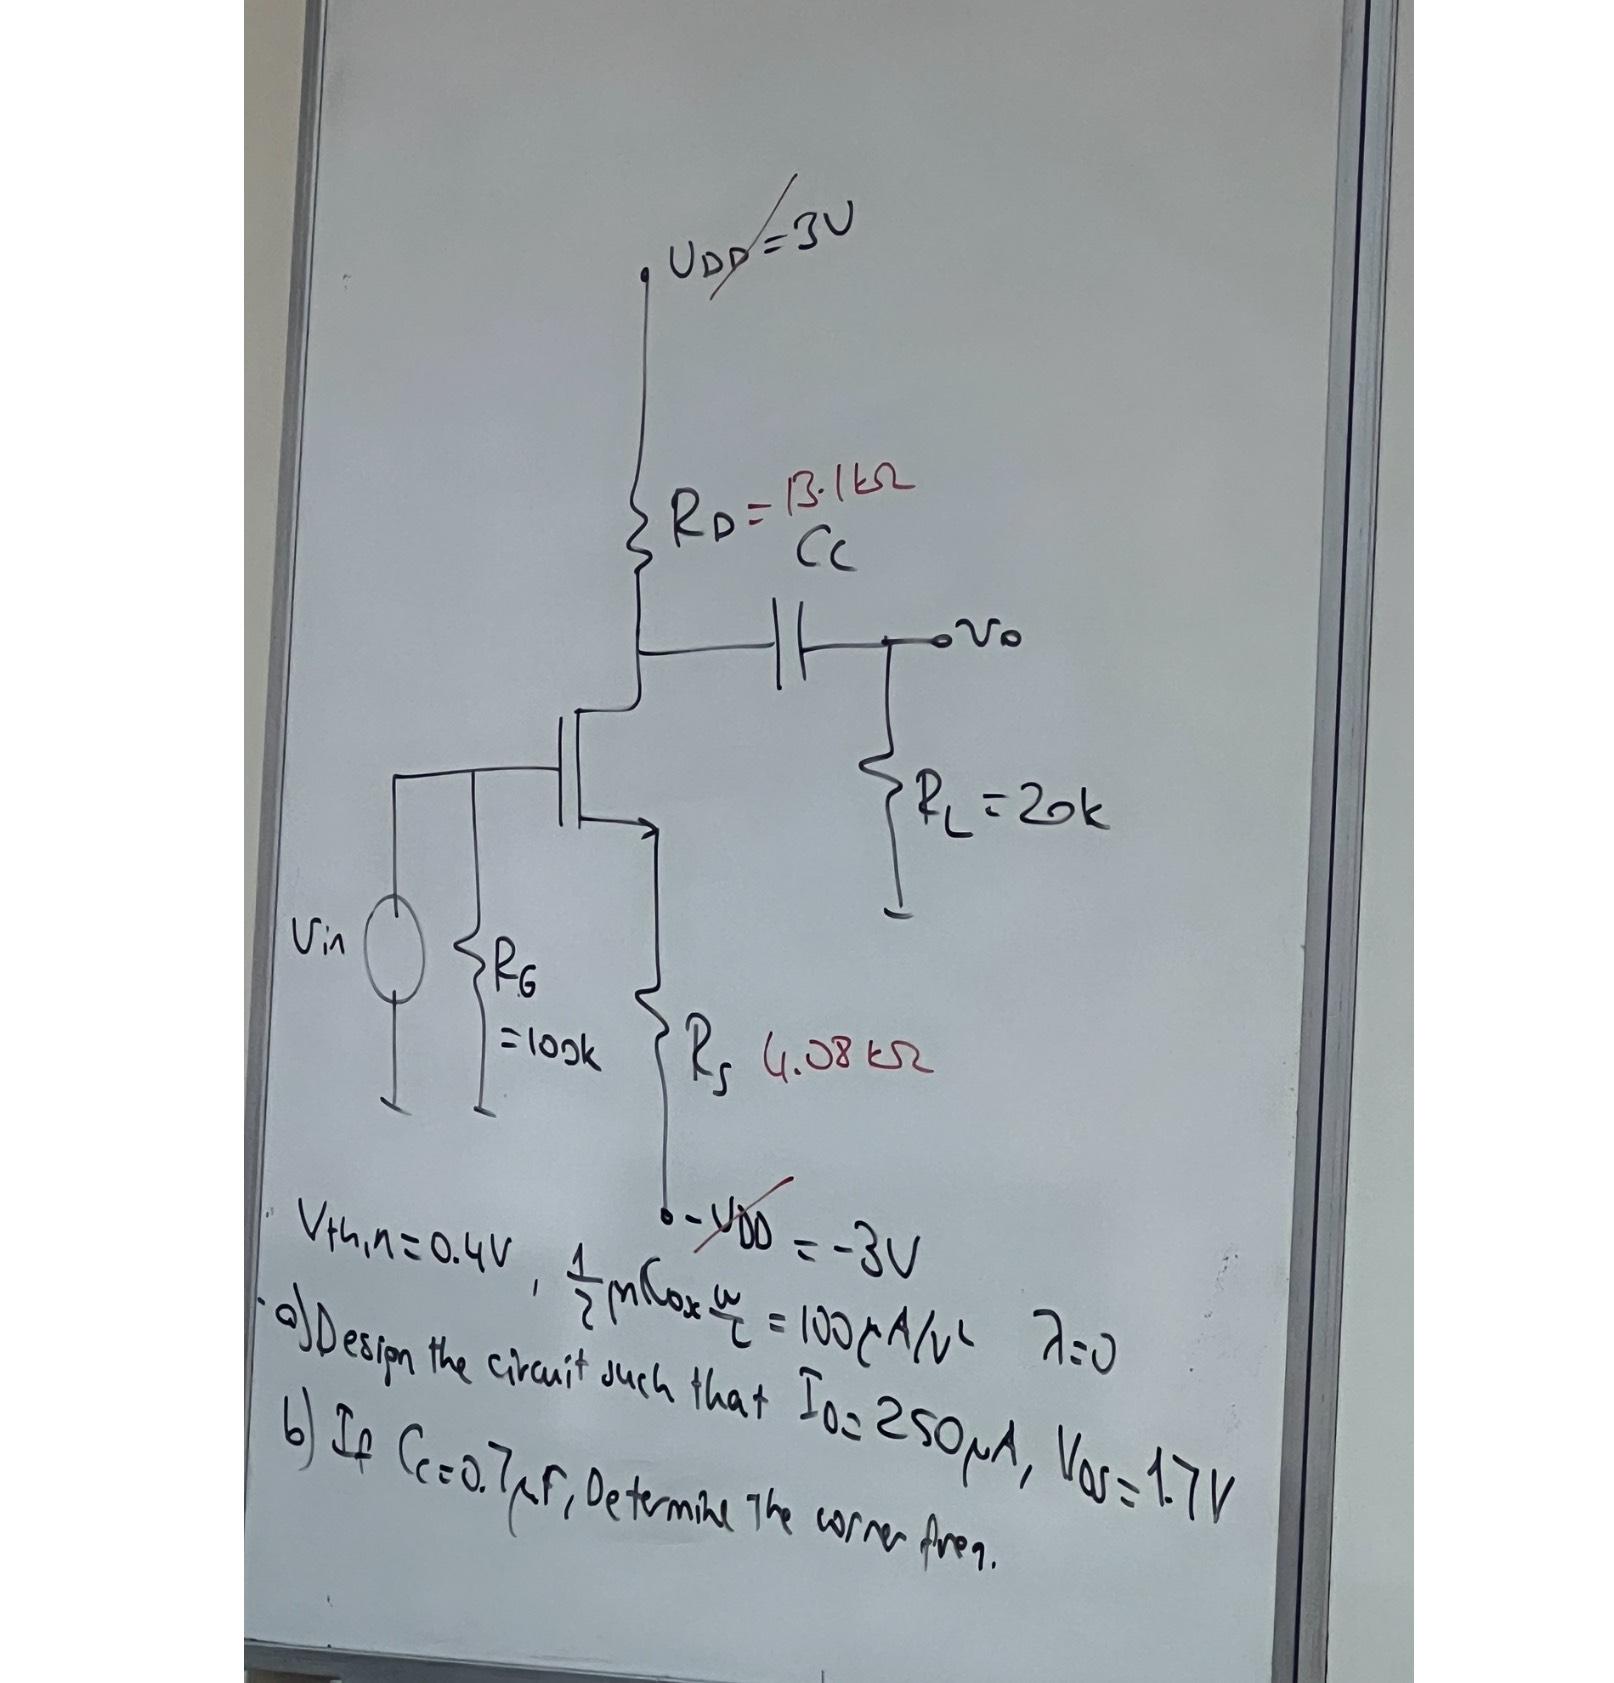 VDD=3V
RD=13.1kΩ
Cc
Vo
RL=20k
Vin
RG
=100k
Rs 4.08kΩ
-VDD = -3V
Vth,n=0.4V, 1/2 μnCox W/L = 100μA/V² λ=0
a) Design the circuit such that ID=250μA, VDS=1.7V
b) If Cc=0.7μF, Determine The corner freq.